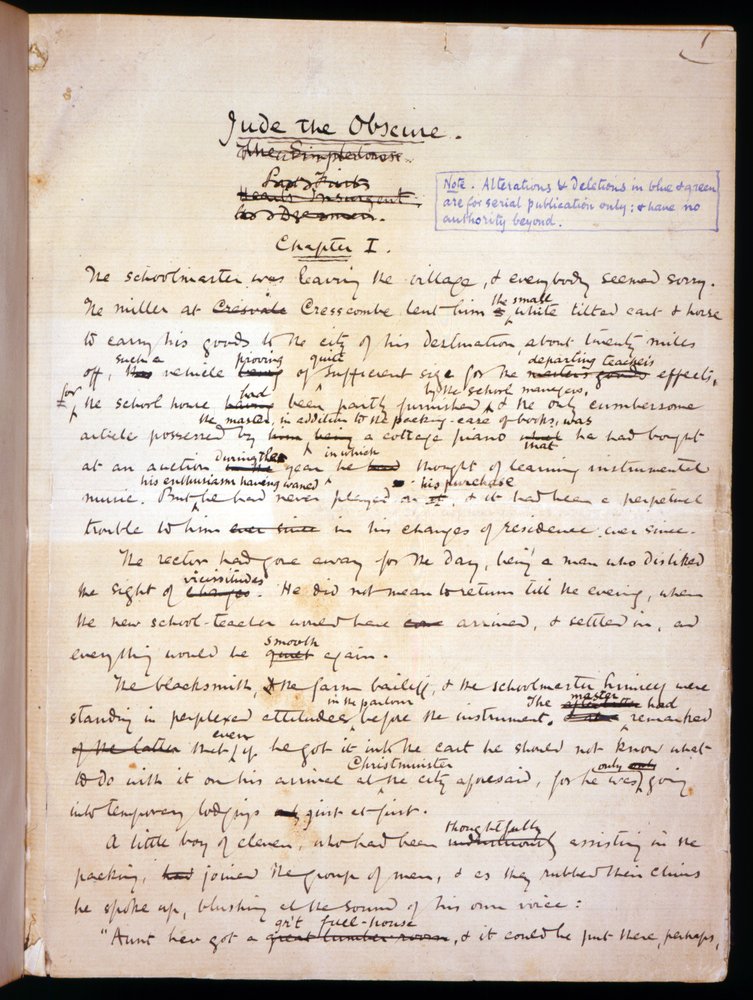 1
Jude the Obscure.
The Simpletons.
Hearts Insurgent.
Note. Alterations & deletions in blue & green
are for serial publication only: & have no
authority beyond.
Chapter I.
The schoolmaster was leaving the village, & everybody seemed sorry.
the small
The miller at Cresscombe lent him white tilted cart & horse
to carry his goods to the city of his destination, about twenty miles
such a proving quite departing teacher's
off, vehicle of sufficient size for the master's goods effects,
for had by the school managers,
the school house having been partly furnished & the only cumbersome
the master, in addition to the packing-case of books, was
article possessed by him being a cottage piano that he had bought
during the in which
at an auction year he had thought of learning instrumental
his enthusiasm having waned his purchase
music. But he had never played on it, & it had been a perpetual
trouble to him ever since in his changes of residence ever since.
The rector had gone away for the day, being a man who disliked
vicissitudes
the sight of changes. He did not mean to return till the evening, when
the new school-teacher would have arrived, & settled in, and
smooth
everything would be quiet again.
The blacksmith, & the farm bailiff, & the schoolmaster himself were
in the parlour The master had
standing in perplexed attitudes before the instrument. remarked
even
of the latter that if he got it into the cart he should not know what
Christminster only
to do with it on his arrival at the city aforesaid, for he was going
into temporary lodgings just at first.
thoughtfully
A little boy of eleven, who had been assisting in the
packing, had joined the group of men, & as they rubbed their chins
he spoke up, blushing at the sound of his own voice:
gr't fuel-house
"Aunt hev got a great lumber-room, & it could be put there, perhaps,